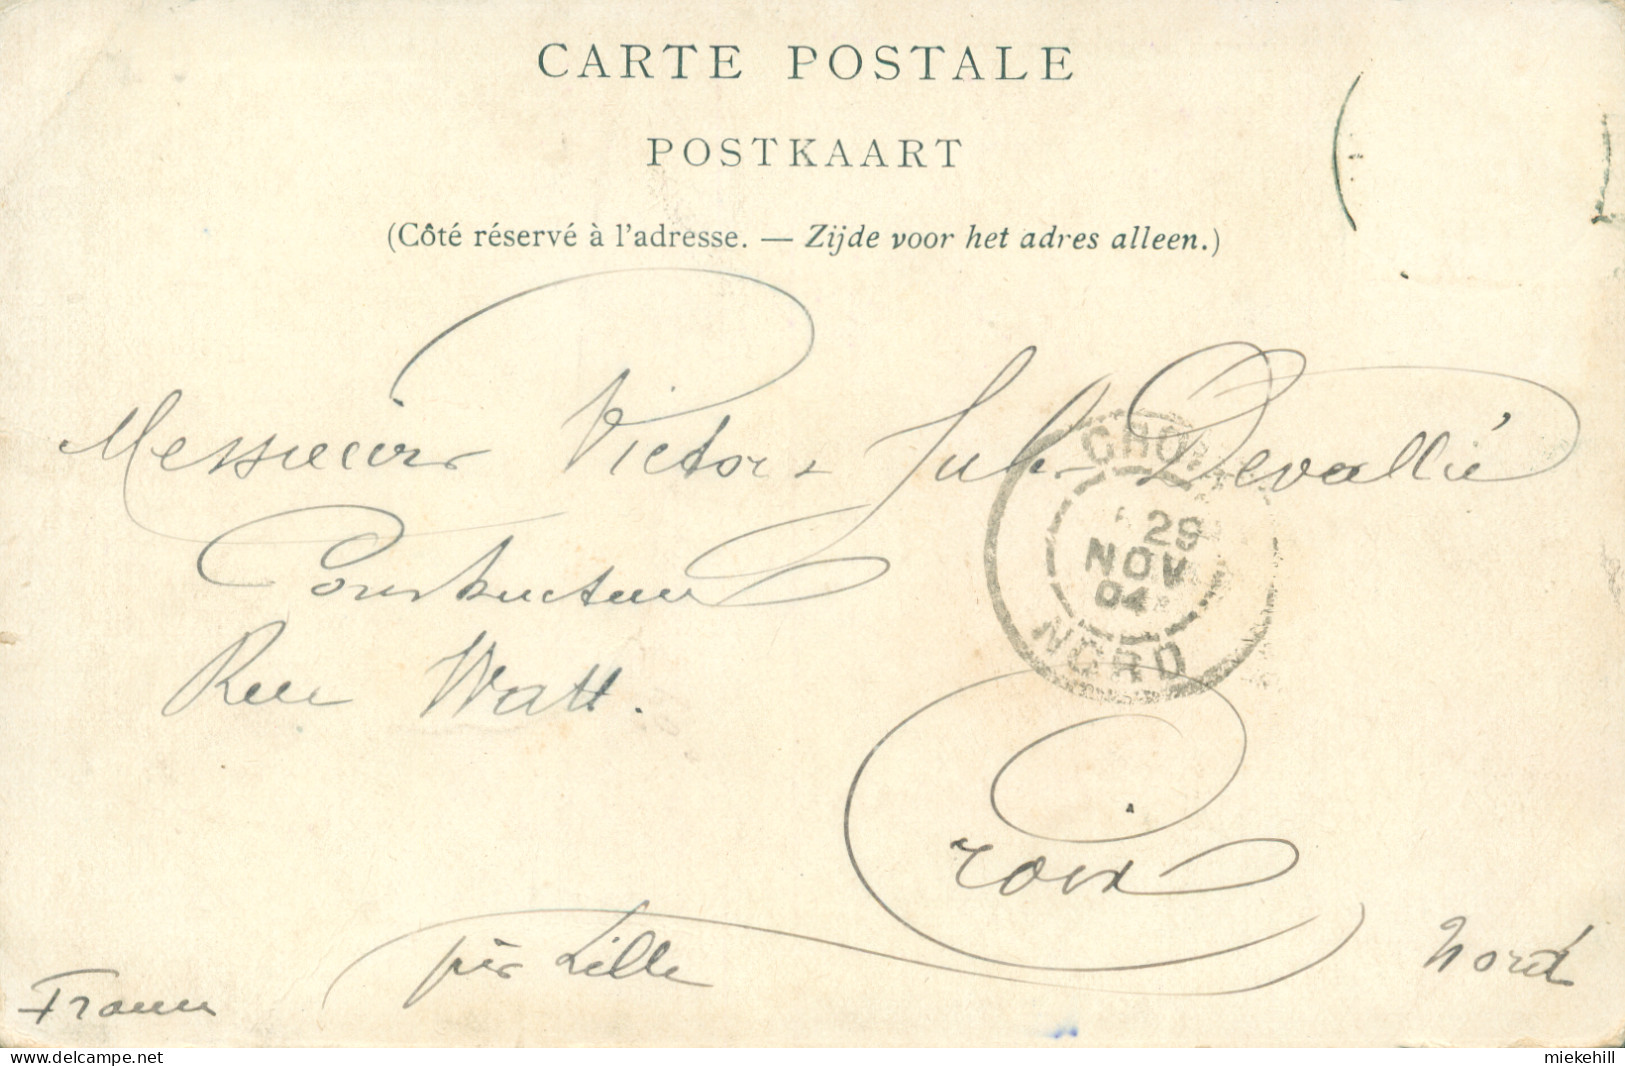 CARTE POSTALE
POSTKAART
(Côté réservé à l'adresse. — Zijde voor het adres alleen.)
Messieurs Victor & Jules Devallié
Constructeurs
Rue Watt.
CROIX
29
NOV
04
NORD
Croix
près Lille
Nord
France
www.delcampe.net
miekehill